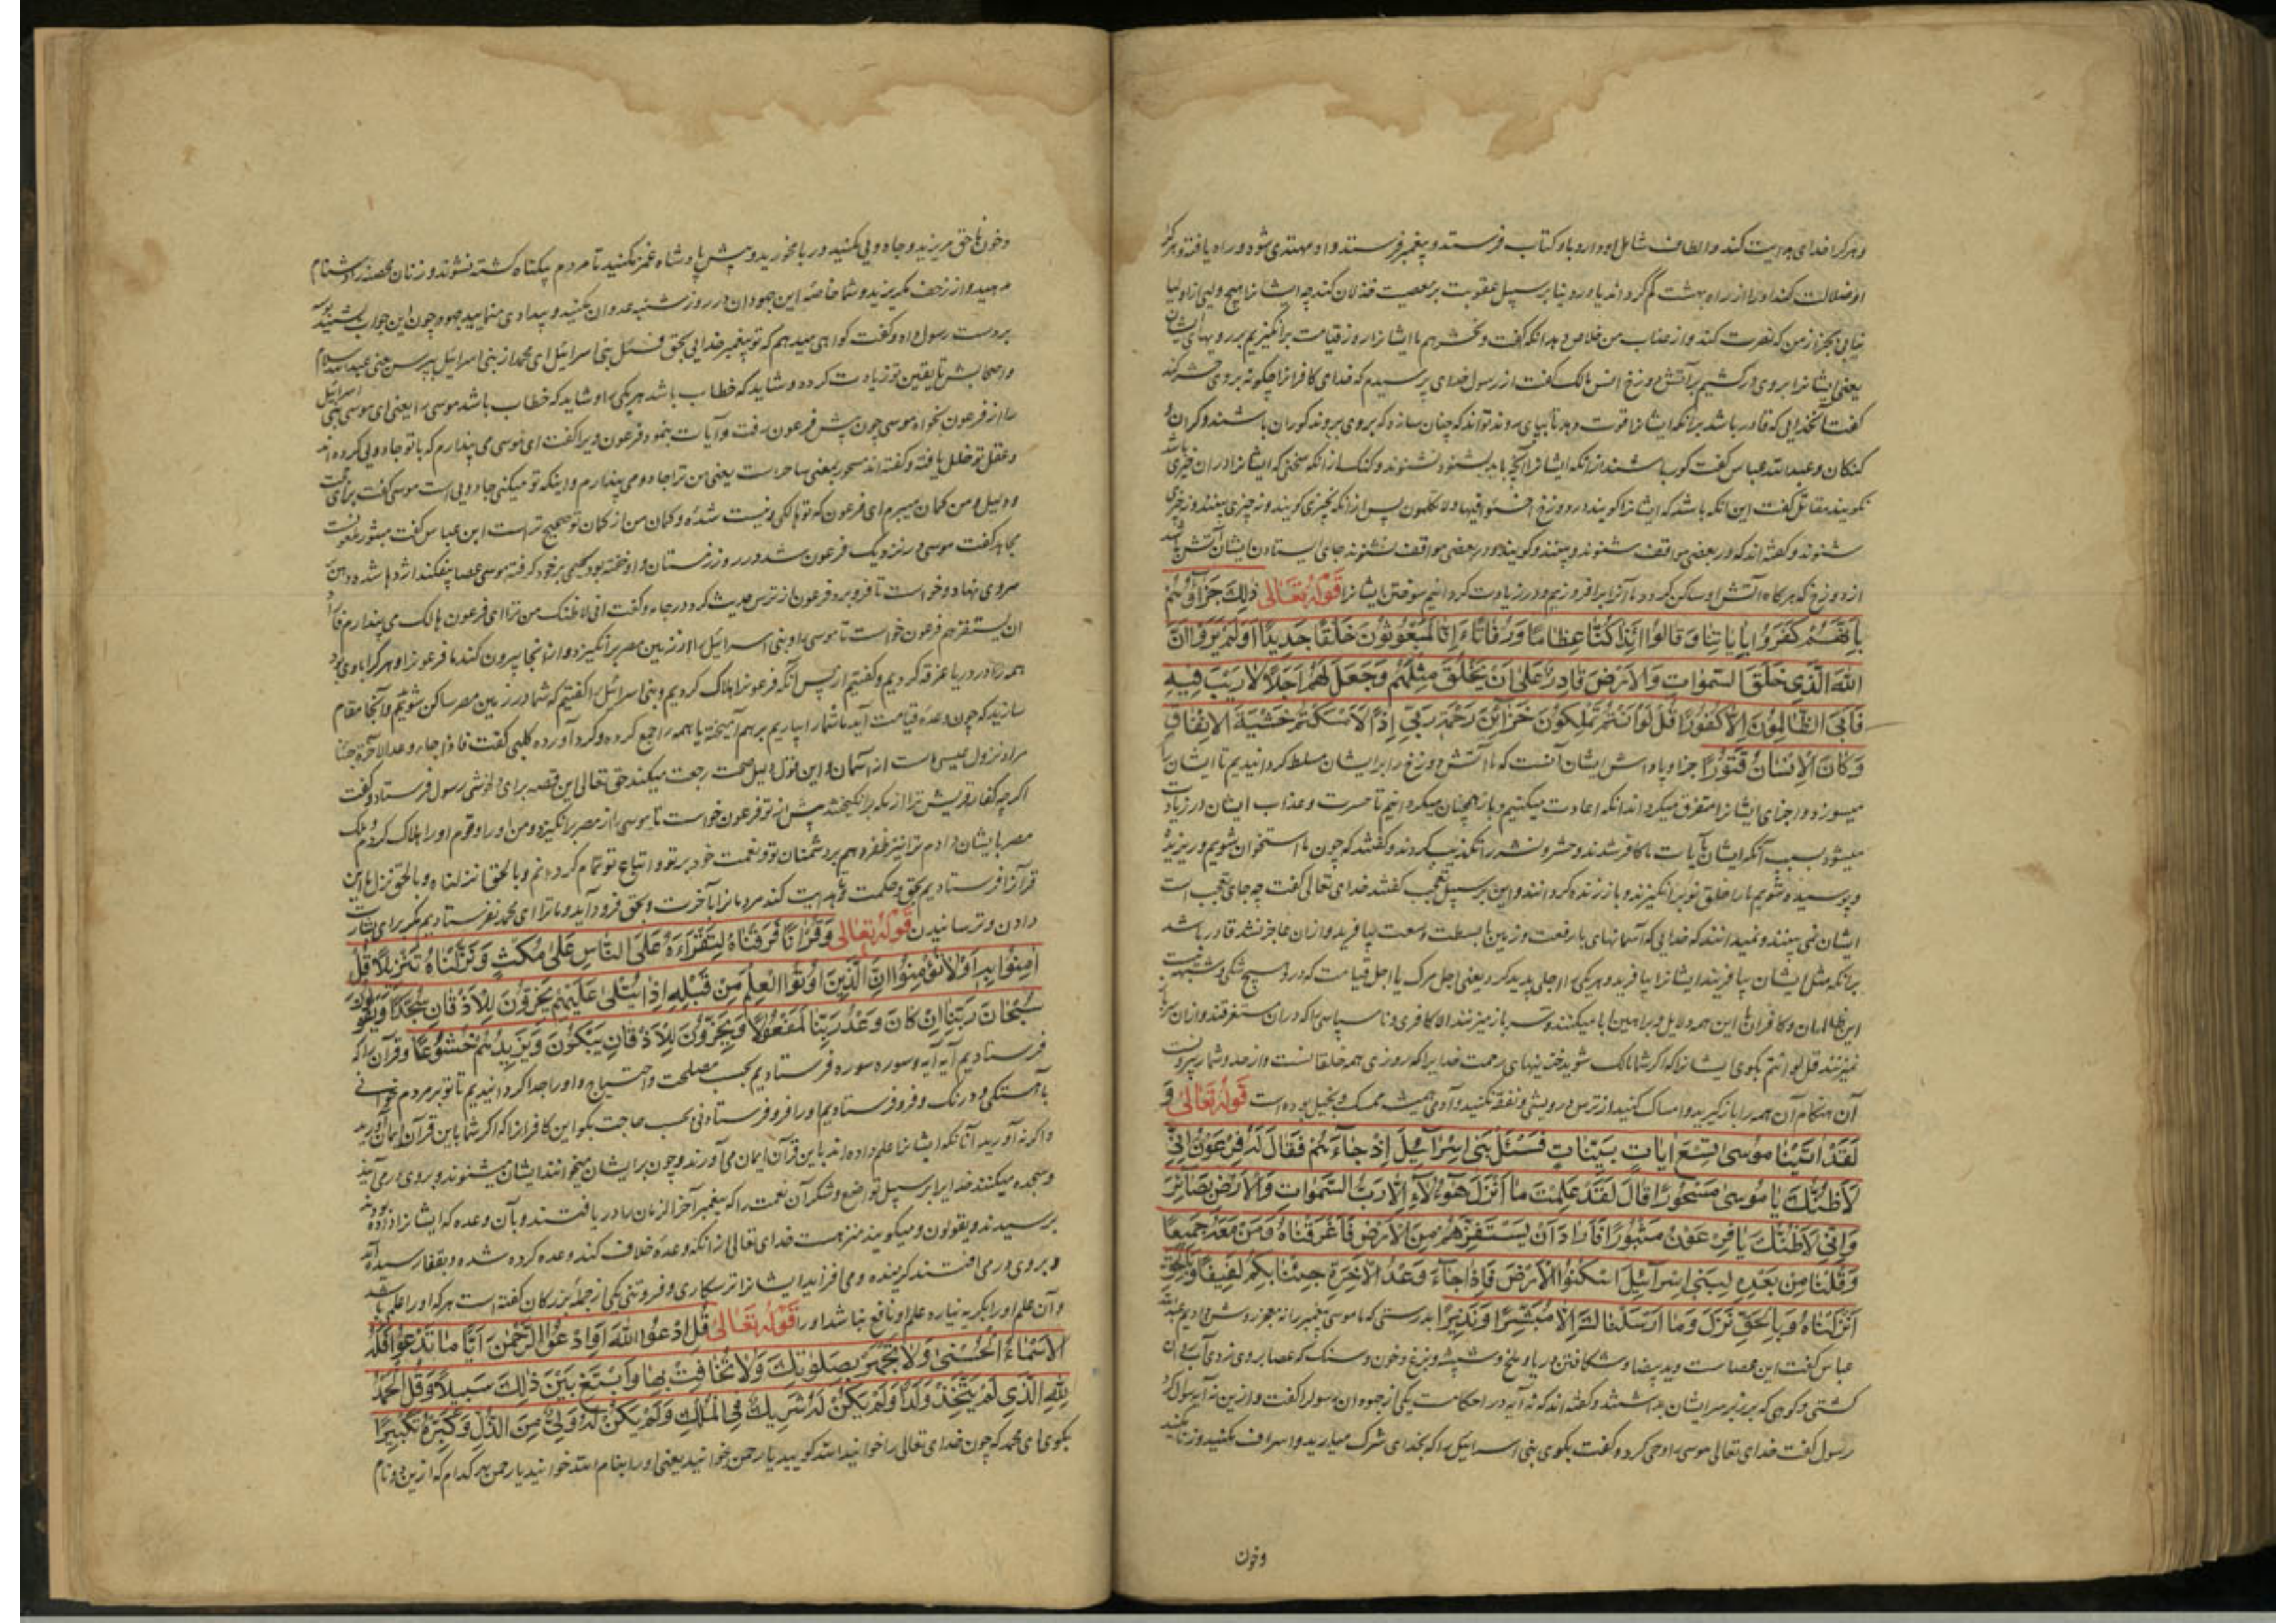 وهر کرا خدای هدایت کند و الطاف شامل او دارد با و کتاب فرستد و پیغمبر فرستد و او مهتدی شود و راه یافته و هر کرا
او ضلالت کند او را از راه بهشت گم گرداند یا در دنیا بر سبیل عقوبت بر معصیت خذلان کند چه ایشانرا هیچ ولیی از اولیا
نیابی بجز از من که نصرت کند و از عذاب من خلاص دهد آنکه گفت و نحشرهم ما ایشانرا روز قیامت برانگیزیم بر رویهای ایشان
یعنی ایشانرا بروی درکشیم بر آتش دوزخ انس مالک گفت از رسول خدای پرسیدم که خدای کافرانرا چگونه بروی حشر کند
گفت آنخدایی که قادر باشد بر آنکه ایشانرا قوت دهد تا بپای روند تواند که چنان سازد که بروی بروند کوران باشند و کران و
گنگان و عبدالله عباس گفت کور باشند از آنکه ایشانرا آنچه باید بشنود نشنوند و گنگ از آنکه سخنی که ایشانرا در آن خیری باشد
نگویند مقاتل گفت این آنکه باشد که ایشانرا گویند در دوزخ اخسئوا فیها ولا تکلمون پس از آنکه نچیزی گویند و نه چیزی بینند و نه چیزی
شنوند و گفته اند که در بعضی مواقف شنوند و بینند و گویند و در بعضی مواقف نشنوند جای ایستادن ایشان آتش باشد
از دوزخ که هر کاه آتش او ساکن گردد ما آنرا برافروزیم و در زیادت گردانیم سوختن ایشانرا قوله تعالی ذلِكَ جَزَاؤُهُمْ
بِاَنَّهُمْ كَفَرُوا بِاٰيَاتِنَا وَقَالُوا ءَاِذَا كُنَّا عِظَامًا وَرُفَاتًا ءَاِنَّا لَمَبْعُوثُونَ خَلْقًا جَدِيدًا اَوَلَمْ يَرَوْا اَنَّ
اللهَ الَّذِي خَلَقَ السَّمٰوَاتِ وَالْاَرْضَ قَادِرٌ عَلىٰ اَنْ يَخْلُقَ مِثْلَهُمْ وَجَعَلَ لَهُمْ اَجَلًا لَا رَيْبَ فِيهِ
فَاَبَى الظَّالِمُونَ اِلَّا كُفُورًا قُلْ لَوْ اَنْتُمْ تَمْلِكُونَ خَزَائِنَ رَحْمَةِ رَبِّي اِذًا لَاَمْسَكْتُمْ خَشْيَةَ الْاِنْفَاقِ
وَكَانَ الْاِنْسَانُ قَتُورًا جزا و پاداش ایشان آنست که ما آتش دوزخ را بر ایشان مسلط گردانیدیم تا ایشان را
میسوزد و اجزای ایشانرا متفرق میگرداند آنکه اعادت میکنیم و باز همچنان میگردانیم تا حسرت و عذاب ایشان در زیادت
میشود بسبب آنکه ایشان بآیات ما کافر شدند و حشر و نشر را تکذیب کردند و گفتند که چون ما استخوان شویم و ریزیزه
و پوسیده شویم ما را خلق نو برانگیزند و باز زنده گردانند و این بر سبیل تعجب گفتند خدای تعالی گفت چه جای تعجب است
ایشان نمی بینند و نمیدانند که خدایی که آسمانهای با رفعت و زمین با بسطت وسعت بیافرید و از آن عاجز نشد قادر باشد
بر آنکه مثل ایشان بیافریند ایشانرا بیافرید و هر یکی را اجلی پدید کرد یعنی اجل مرگ یا اجل قیامت که در و هیچ شکی و شبهه نیست
این ظالمان و کافران با این همه دلایل و براهین ابا میکنند و سر باز میزنند الا کافری و ناسپاسی را که در آن مستغرقند و از آن سر باز
نمیزنند قل لو انتم بگوی ایشانرا که اگر شما مالک شوید خزینهای رحمت خدا را که روزی همه خلقانست و از حد و شمار بیرونست
آن هنگام آن همه را باز گیرید و امساک کنید از ترس درویشی و نفقه نکنید و آدمی همیشه ممسک و بخیل بوده است قوله تعالی وَ
لَقَدْ اٰتَيْنَا مُوسىٰ تِسْعَ اٰيَاتٍ بَيِّنَاتٍ فَسْئَلْ بَنِي اِسْرَائِيلَ اِذْ جَاءَهُمْ فَقَالَ لَهُ فِرْعَوْنُ اِنِّي
لَاَظُنُّكَ يَا مُوسىٰ مَسْحُورًا قَالَ لَقَدْ عَلِمْتَ مَا اَنْزَلَ هٰؤُلَاءِ اِلَّا رَبُّ السَّمٰوَاتِ وَالْاَرْضِ بَصَائِرَ
وَاِنِّي لَاَظُنُّكَ يَا فِرْعَوْنُ مَثْبُورًا فَاَرَادَ اَنْ يَسْتَفِزَّهُمْ مِنَ الْاَرْضِ فَاَغْرَقْنَاهُ وَمَنْ مَعَهُ جَمِيعًا
وَقُلْنَا مِنْ بَعْدِهِ لِبَنِي اِسْرَائِيلَ اسْكُنُوا الْاَرْضَ فَاِذَا جَاءَ وَعْدُ الْاٰخِرَةِ جِئْنَا بِكُمْ لَفِيفًا وَبِالْحَقِّ
اَنْزَلْنَاهُ وَبِالْحَقِّ نَزَلَ وَمَا اَرْسَلْنَاكَ اِلَّا مُبَشِّرًا وَنَذِيرًا بدرستی که ما موسی پیغمبر را نه معجزه روشن دادیم عبدالله
عباس گفت این عصاست و ید بیضا و شکافتن دریا و ملخ و شپشه و بزغ و خون و سنگ که عصا بر وی زدی آب از آن
گشتی و کوهی که بر زبر سر ایشان بداشتند و گفته اند که نه آیه در احکامست یکی از جهودان رسول را گفت و ازین نه آیه سوال کرد
رسول گفت خدای تعالی موسی را وحی کرد و گفت بگوی بنی اسرائیل را که بخدای شرک میارید و اسراف نکنید و زنا نکنید
وخون
وخون ناحق مریزید و جادویی نکنید و ربا مخورید و پیش پادشاه غمز نکنید تا مردم بیگناه کشته نشوند و زنان محصنه را دشنام
مدهید و از زحف مگریزید و شما خاصه این جهودان در روز شنبه عدوان نکنید و بیدادی منمایید جهود چون این جواب بشنید بوسه
بر دست رسول داد و گفت گواهی میدهم که تو پیغمبر خدایی بحق فسئل بنی اسرائیل ای محمد از بنی اسرائیل بپرس یعنی عبدالله سلام
و اصحابش تا یقین تو زیادت گردد و شاید که خطاب باشد هر یکی را و شاید که خطاب باشد موسی را یعنی ای موسی بنی اسرائیل
را از فرعون بخواه موسی چون پیش فرعون رفت و آیات بنمود فرعون ویرا گفت ای موسی می پندارم که با تو جادویی کرده اند
و عقل تو خلل یافته و گفته اند مسحور بمعنی ساحر است یعنی من ترا جادو می پندارم و اینکه تو میکنی جادویی است موسی گفت
و دلیل و من گمان میبرم ای فرعون که تو هالکی و نیست شده و گمان من از گمان تو صحیح تر است ابن عباس گفت مثبور ملعونست
مجاهد گفت موسی در نزدیک فرعون شد در روز زمستان و گلیمی بر خود گرفته موسی عصا بیفکند اژدها شد و دهن
سروی نهاد و خواست تا فرو برد فرعون از ترس حدث کرد در جامه و گفت انی لاظنک من ترا ای فرعون هالک می پندارم فاراد
ان یستفزهم فرعون خواست تا موسی را و بنی اسرائیل را از زمین مصر برانگیزد و از آنجا بیرون کند ما فرعونرا و هر کرا با وی بود
همه را در دریا غرقه کردیم و گفتیم از پس آنکه فرعونرا هلاک کردیم و بنی اسرائیل را گفتیم که شما در زمین مصر ساکن شوید و آنجا مقام
سازید که چون وعده قیامت آید ما شما را بیاریم بر هم آمیخته یا همه را جمع کرده و گرد آورده کلبی گفت فاذا جاء وعد الاخرة جئنا
مراد نزول عیسی است از آسمان و این قول دلیل صحت رجعت میکند حق تعالی این قصه برای دلخوشی رسول فرستاد و گفت
اگر چه کفار قریش ترا از مکه برانگیختند پیش از تو فرعون خواست تا موسی را از مصر برانگیزد و من او را و قوم او را هلاک کردم و ملک
مصر بایشان دادم ترا نیز ظفر دهم بر دشمنان تو و نعمت خود بر تو و اتباع تو تمام گردانم و بالحق انزلناه و بالحق نزل ما این
قرآن را فرستادیم بحق و حکمت و تا هدایت کند مردمانرا بآخرت و بحق فرو آید و ما ترا ای محمد نفرستادیم مگر برای بشارت
دادن و ترسانیدن قوله تعالی وَقُرْاٰنًا فَرَقْنَاهُ لِتَقْرَاَهُ عَلَى النَّاسِ عَلىٰ مُكْثٍ وَنَزَّلْنَاهُ تَنْزِيلًا قُلْ
اٰمِنُوا بِهِ اَوْ لَا تُؤْمِنُوا اِنَّ الَّذِينَ اُوتُوا الْعِلْمَ مِنْ قَبْلِهِ اِذَا يُتْلىٰ عَلَيْهِمْ يَخِرُّونَ لِلْاَذْقَانِ سُجَّدًا وَيَقُولُونَ
سُبْحَانَ رَبِّنَا اِنْ كَانَ وَعْدُ رَبِّنَا لَمَفْعُولًا وَيَخِرُّونَ لِلْاَذْقَانِ يَبْكُونَ وَيَزِيدُهُمْ خُشُوعًا و قرآن را که
فرستادیم آیه آیه و سوره سوره فرستادیم بحسب مصلحت و احتیاج و او را جدا گردانیدیم تا تو بر مردم خوانی
بآهستگی و درنگ و فرو فرستادیم او را فرو فرستادنی بحسب حاجت بگو این کافرانرا که اگر شما باین قرآن ایمان آورید
و اگر نه آورید آنانکه ایشانرا علم داده اند باین قرآن ایمان می آورند و چون بر ایشان میخوانند ایشان میشنوند و بروی در می آیند
و سجده میکنند خدا را بر سبیل تواضع و شکر آن نعمت را که پیغمبر آخر الزمان را دریافتند و بآن وعده که ایشانرا داده بودند
برسیدند و یقولون و میگویند منزهست خدای تعالی از آنکه وعده خلاف کند وعده کرده شده و
و بروی در می افتند گرینده و می افزاید ایشانرا ترسکاری و فروتنی یکی از جمله بزرگان گفته است هر که او را علم باشد
و آن علم او را بگریه نیارد علم او نافع نباشد او را قوله تعالی قُلِ ادْعُوا اللهَ اَوِ ادْعُوا الرَّحْمٰنَ اَيًّا مَا تَدْعُوا فَلَهُ
الْاَسْمَاءُ الْحُسْنىٰ وَلَا تَجْهَرْ بِصَلٰوتِكَ وَلَا تُخَافِتْ بِهَا وَابْتَغِ بَيْنَ ذٰلِكَ سَبِيلًا وَقُلِ الْحَمْدُ
لِلّٰهِ الَّذِي لَمْ يَتَّخِذْ وَلَدًا وَلَمْ يَكُنْ لَهُ شَرِيكٌ فِي الْمُلْكِ وَلَمْ يَكُنْ لَهُ وَلِيٌّ مِنَ الذُّلِّ وَكَبِّرْهُ تَكْبِيرًا
بگوی ای محمد که چون خدای تعالی را خوانید الله گویید یا رحمن خوانید یعنی او را بنام الله خوانید یا رحمن هر کدام که ازین دو نام